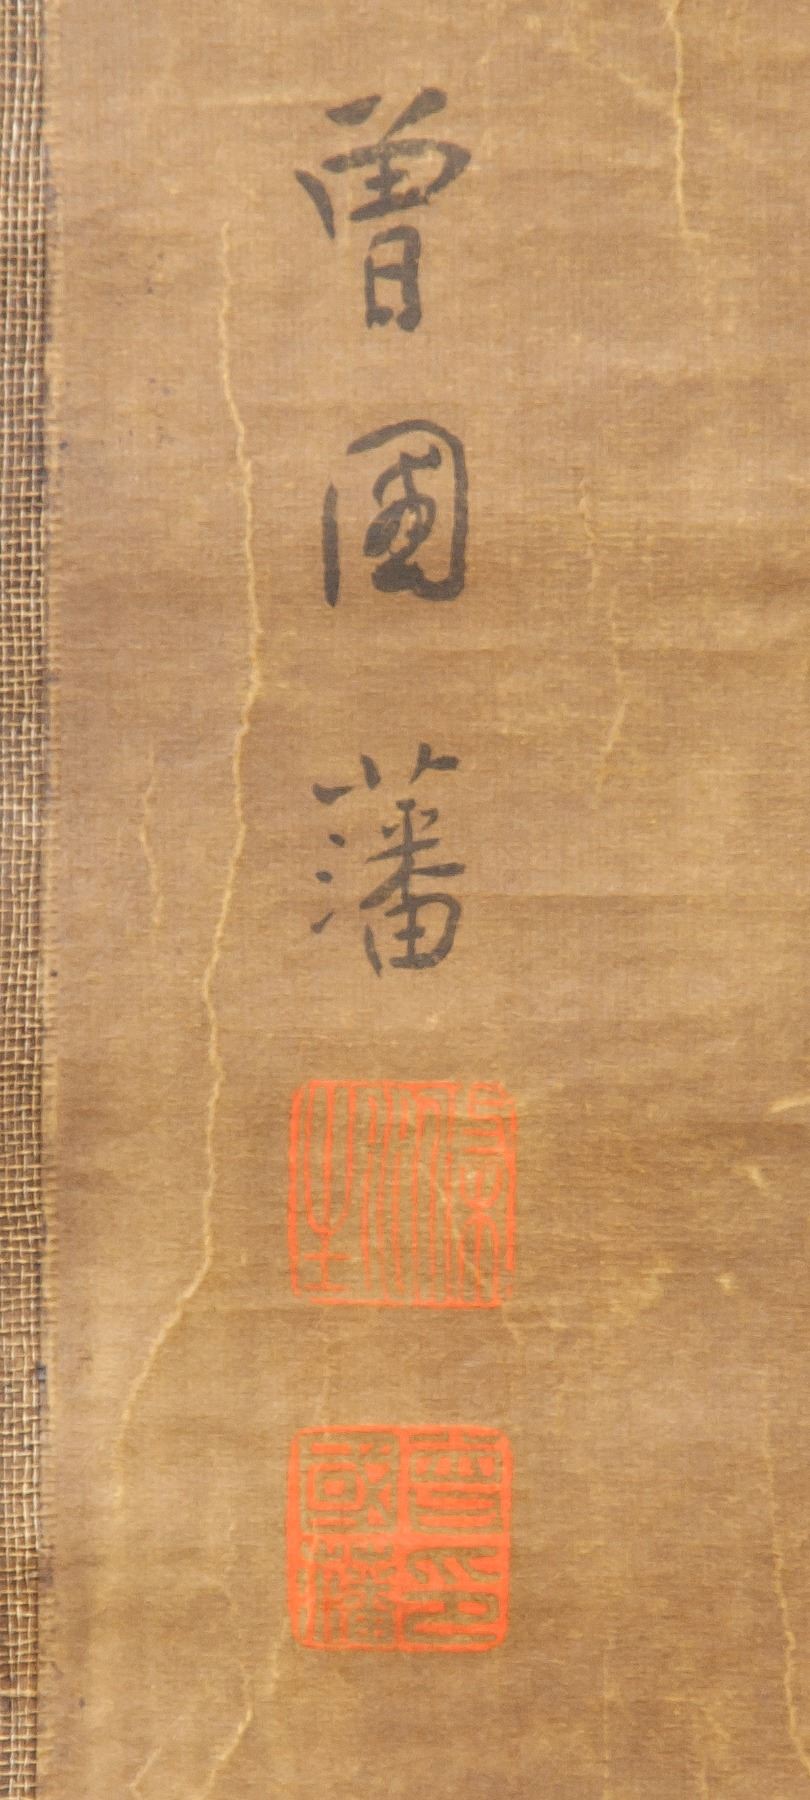 曾國藩
滌生
曾印國藩